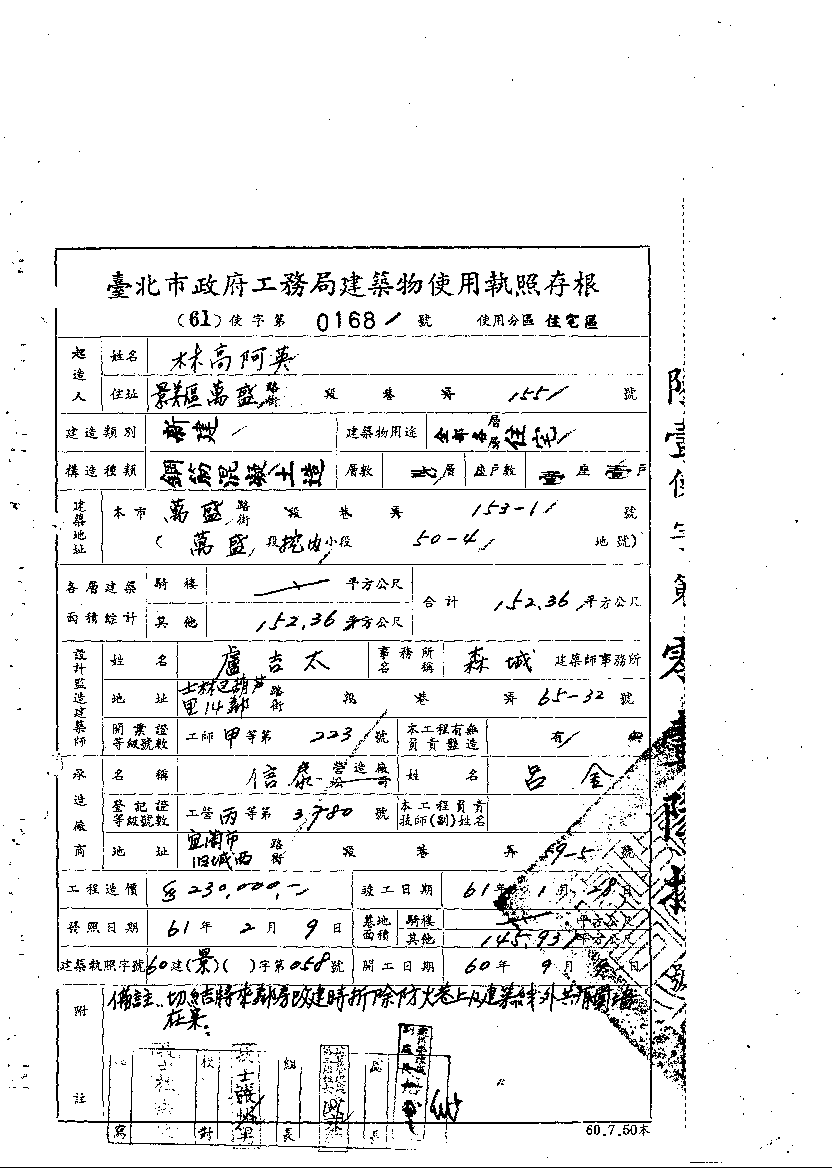 臺北市政府工務局建築物使用執照存根
(61)使字第 0168 號 使用分區 住宅區
起造人 姓名 林高阿英
住址 景美區萬盛 路街 段 巷 弄 155 號
建造類別 新建 建築物用途 全部各層 住宅
構造種類 鋼筋混凝土造 層數 貳層 座戶數 壹座壹戶
建築地址 本市 萬盛 路街 段 巷 弄 153-1 號
(萬盛段挖內小段 50-4 地號)
各層建築面積綜計 騎樓 平方公尺 合計 152.36 平方公尺
其他 152.36 平方公尺
設計監造建築師 姓名 盧吉太 事務所名稱 森城 建築師事務所
地址 士林區葫芦里14鄰 路街 段 巷 弄 65-32 號
開業證等級號數 工師甲等第 223 號 本工程有無負責監造 有 無
承造廠商 名稱 信泰 營造廠公司 姓名 呂金
登記證等級號數 工營丙等第 3780 號 本工程負責技師(副)姓名
地址 宜蘭市旧城西 路街 段 巷 弄 59-5 號
工程造價 230,000 竣工日期 61年1月28日
發照日期 61年2月9日 基地面積 騎樓 平方公尺
其他 145.93 平方公尺
建築執照字號 60建(景)( )字第058號 開工日期 60年9月 日
附註 備註:切結將來鄰房改建時拆除防火巷上及建築線外共有圍牆
在案。
校對 組長
60.7.50本